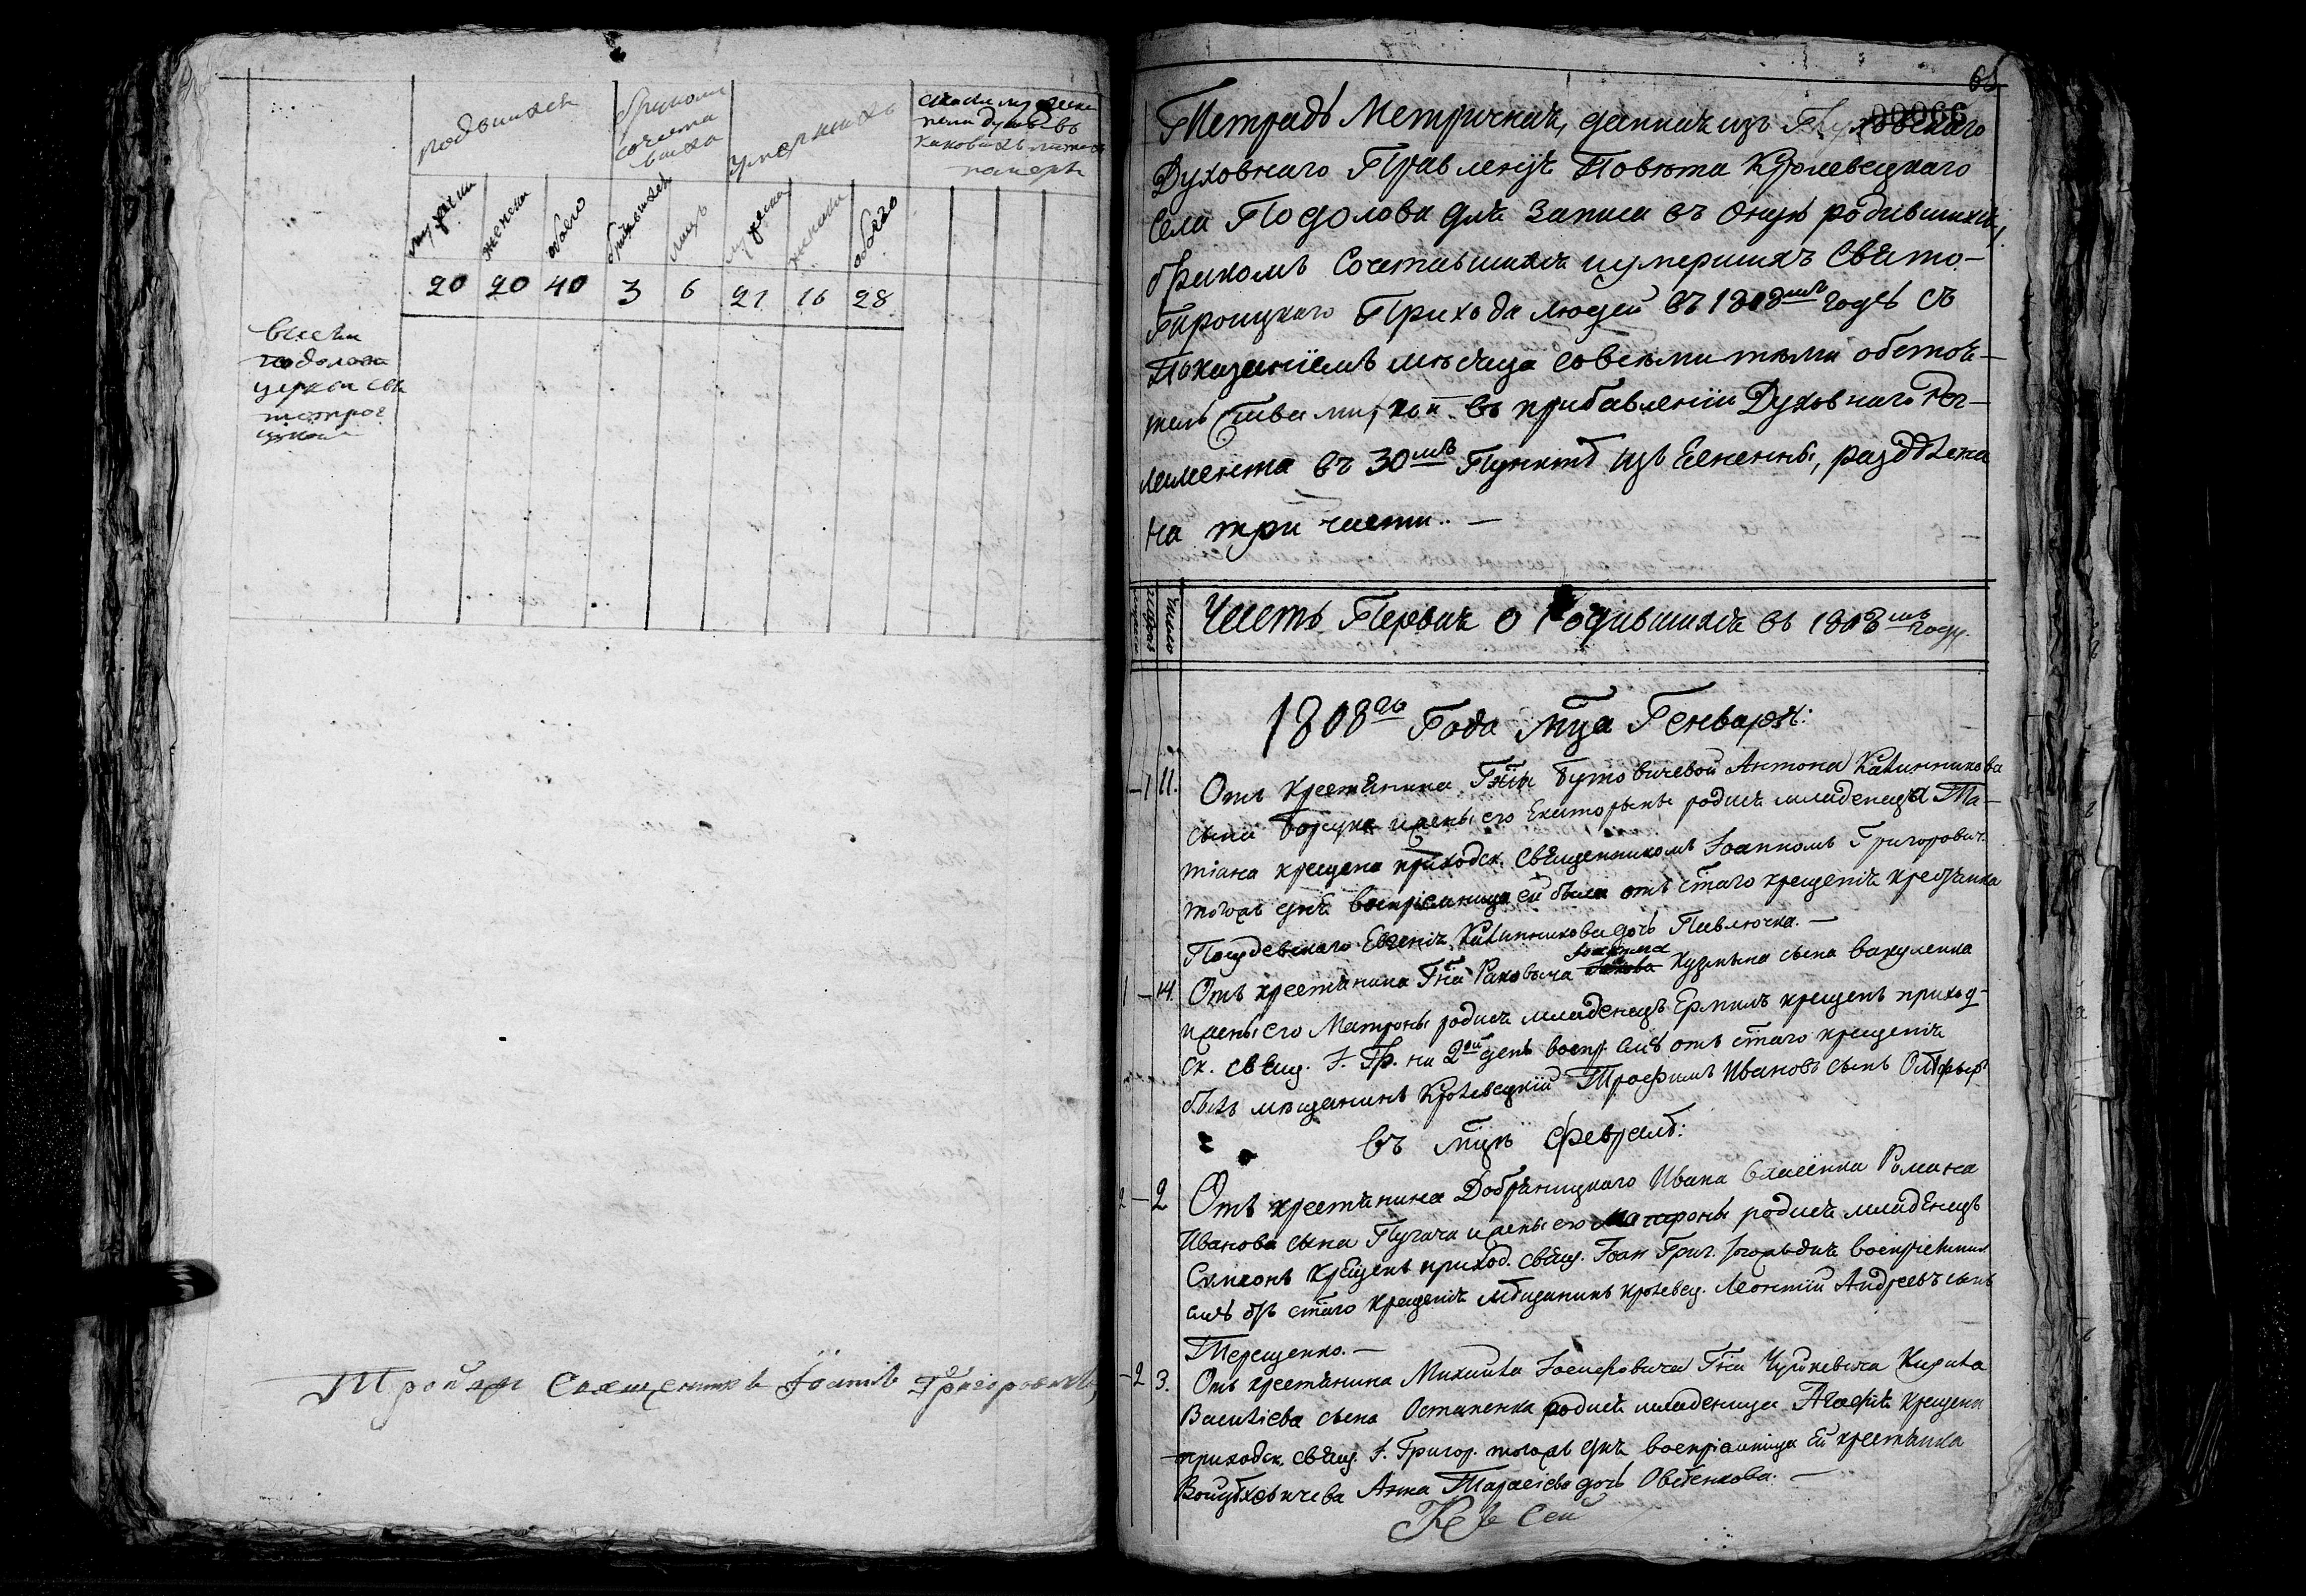 родившихся
бракомъ
сочета
вшихся
умершихъ
мужеска
женска
обоего
бракъ
лицъ
мужеска
женска
обоего
20 20 40 3 6 21 16 28
в селѣ
Подолова
церкви свѧ
тотрои
цкой
Трой свѧщенникъ Іоаннъ Григоровичъ
00066
Тетрадь Метричнаѧ, даннаѧ изъ
Духовнаго Правленіѧ Повѣта Кролевецкаго
Села Подолова длѧ записи въ оную родившихсѧ,
бракомъ сочетавшихсѧ иумершихъ свѧто-
Троицкаго Прихода людей въ 1808мъ годѣ съ
показаніемъ мѣсѧца совсѣми тѣми обстоѧ-
тельствами, кои въ прибавленіи Духовнаго Рег-
ламента въ 30мъ Пунктѣ изъѧснены, раздѣлена
на три части. —
Число
Часть Перваѧ о Родившихсѧ въ 1808мъ году.
1808го Года мца Генварѧ:
1 11. Отъ крестѧнина Бутовичевой Антона Калинникова
сына и жены его Екатерины родисѧ младенца Та-
тіана крещена приходск. свѧщенникомъ Іоанномъ Григорович.
тогожъ днѧ воспріемница ей была отъ стаго крещеніѧ крестѧнка
Евгеніѧ Калинникова дочь Павлючка. —
Іоакима
1 14. Отъ крестѧнина Гна Раковича Іакова Кузмина сына Вакуленка
и жены его Матроны родисѧ младенецъ Ермилъ крещенъ приход-
ск. свѧщ. І. Гр. на 2ой день воспр. емъ отъ стаго крещеніѧ
былъ мѣщанинъ Кролевецкій Трофимъ Ивановъ сынъ
Въ мцѣ Февралѣ:
2 2 Отъ крестѧнина Добрѧницкаго Ивана Романа
Иванова сына Пугача и жены его Матроны родисѧ младенецъ
Симеонъ крещенъ приход. свѧщ. Іоан Григ. тогожъ днѧ воспріемник.
емъ отъ стаго крещеніѧ мѣщанинъ кролевец. Леонтій Андреевъ сынъ
Терещенко. —
2 3. Отъ крестѧнина Михаила Іосифовича Гна Чуйкевича Кирила
Василіева сына Остапенка родисѧ младеница Агафіѧ крещена
приходск. свѧщ. І. Григор. тогожъ днѧ воспріемница ей крестѧнка
Войцѣховичева Анна Тарасіева дочь Овсѣенкова. —
Къ сей